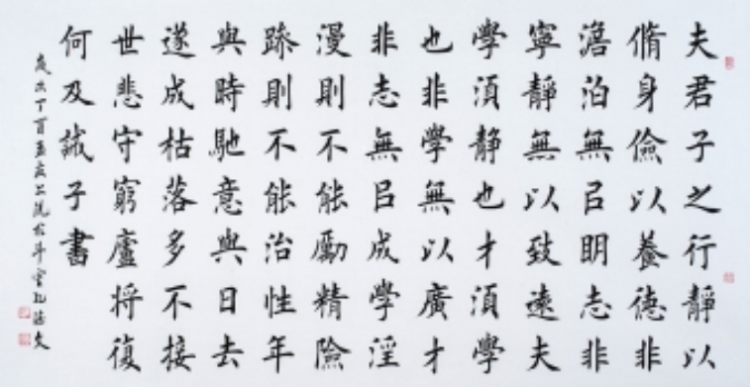 夫君子之行靜以
脩身儉以養德非
澹泊無㠯明志非
寧靜無以致遠夫
學須靜也才須學
也非學無以廣才
非志無㠯成學淫
漫則不能勵精險
躁則不能治性年
與時馳意與日去
遂成枯落多不接
世悲守窮廬將復
何及誡子書
歲次丁酉孟上浣於斗室